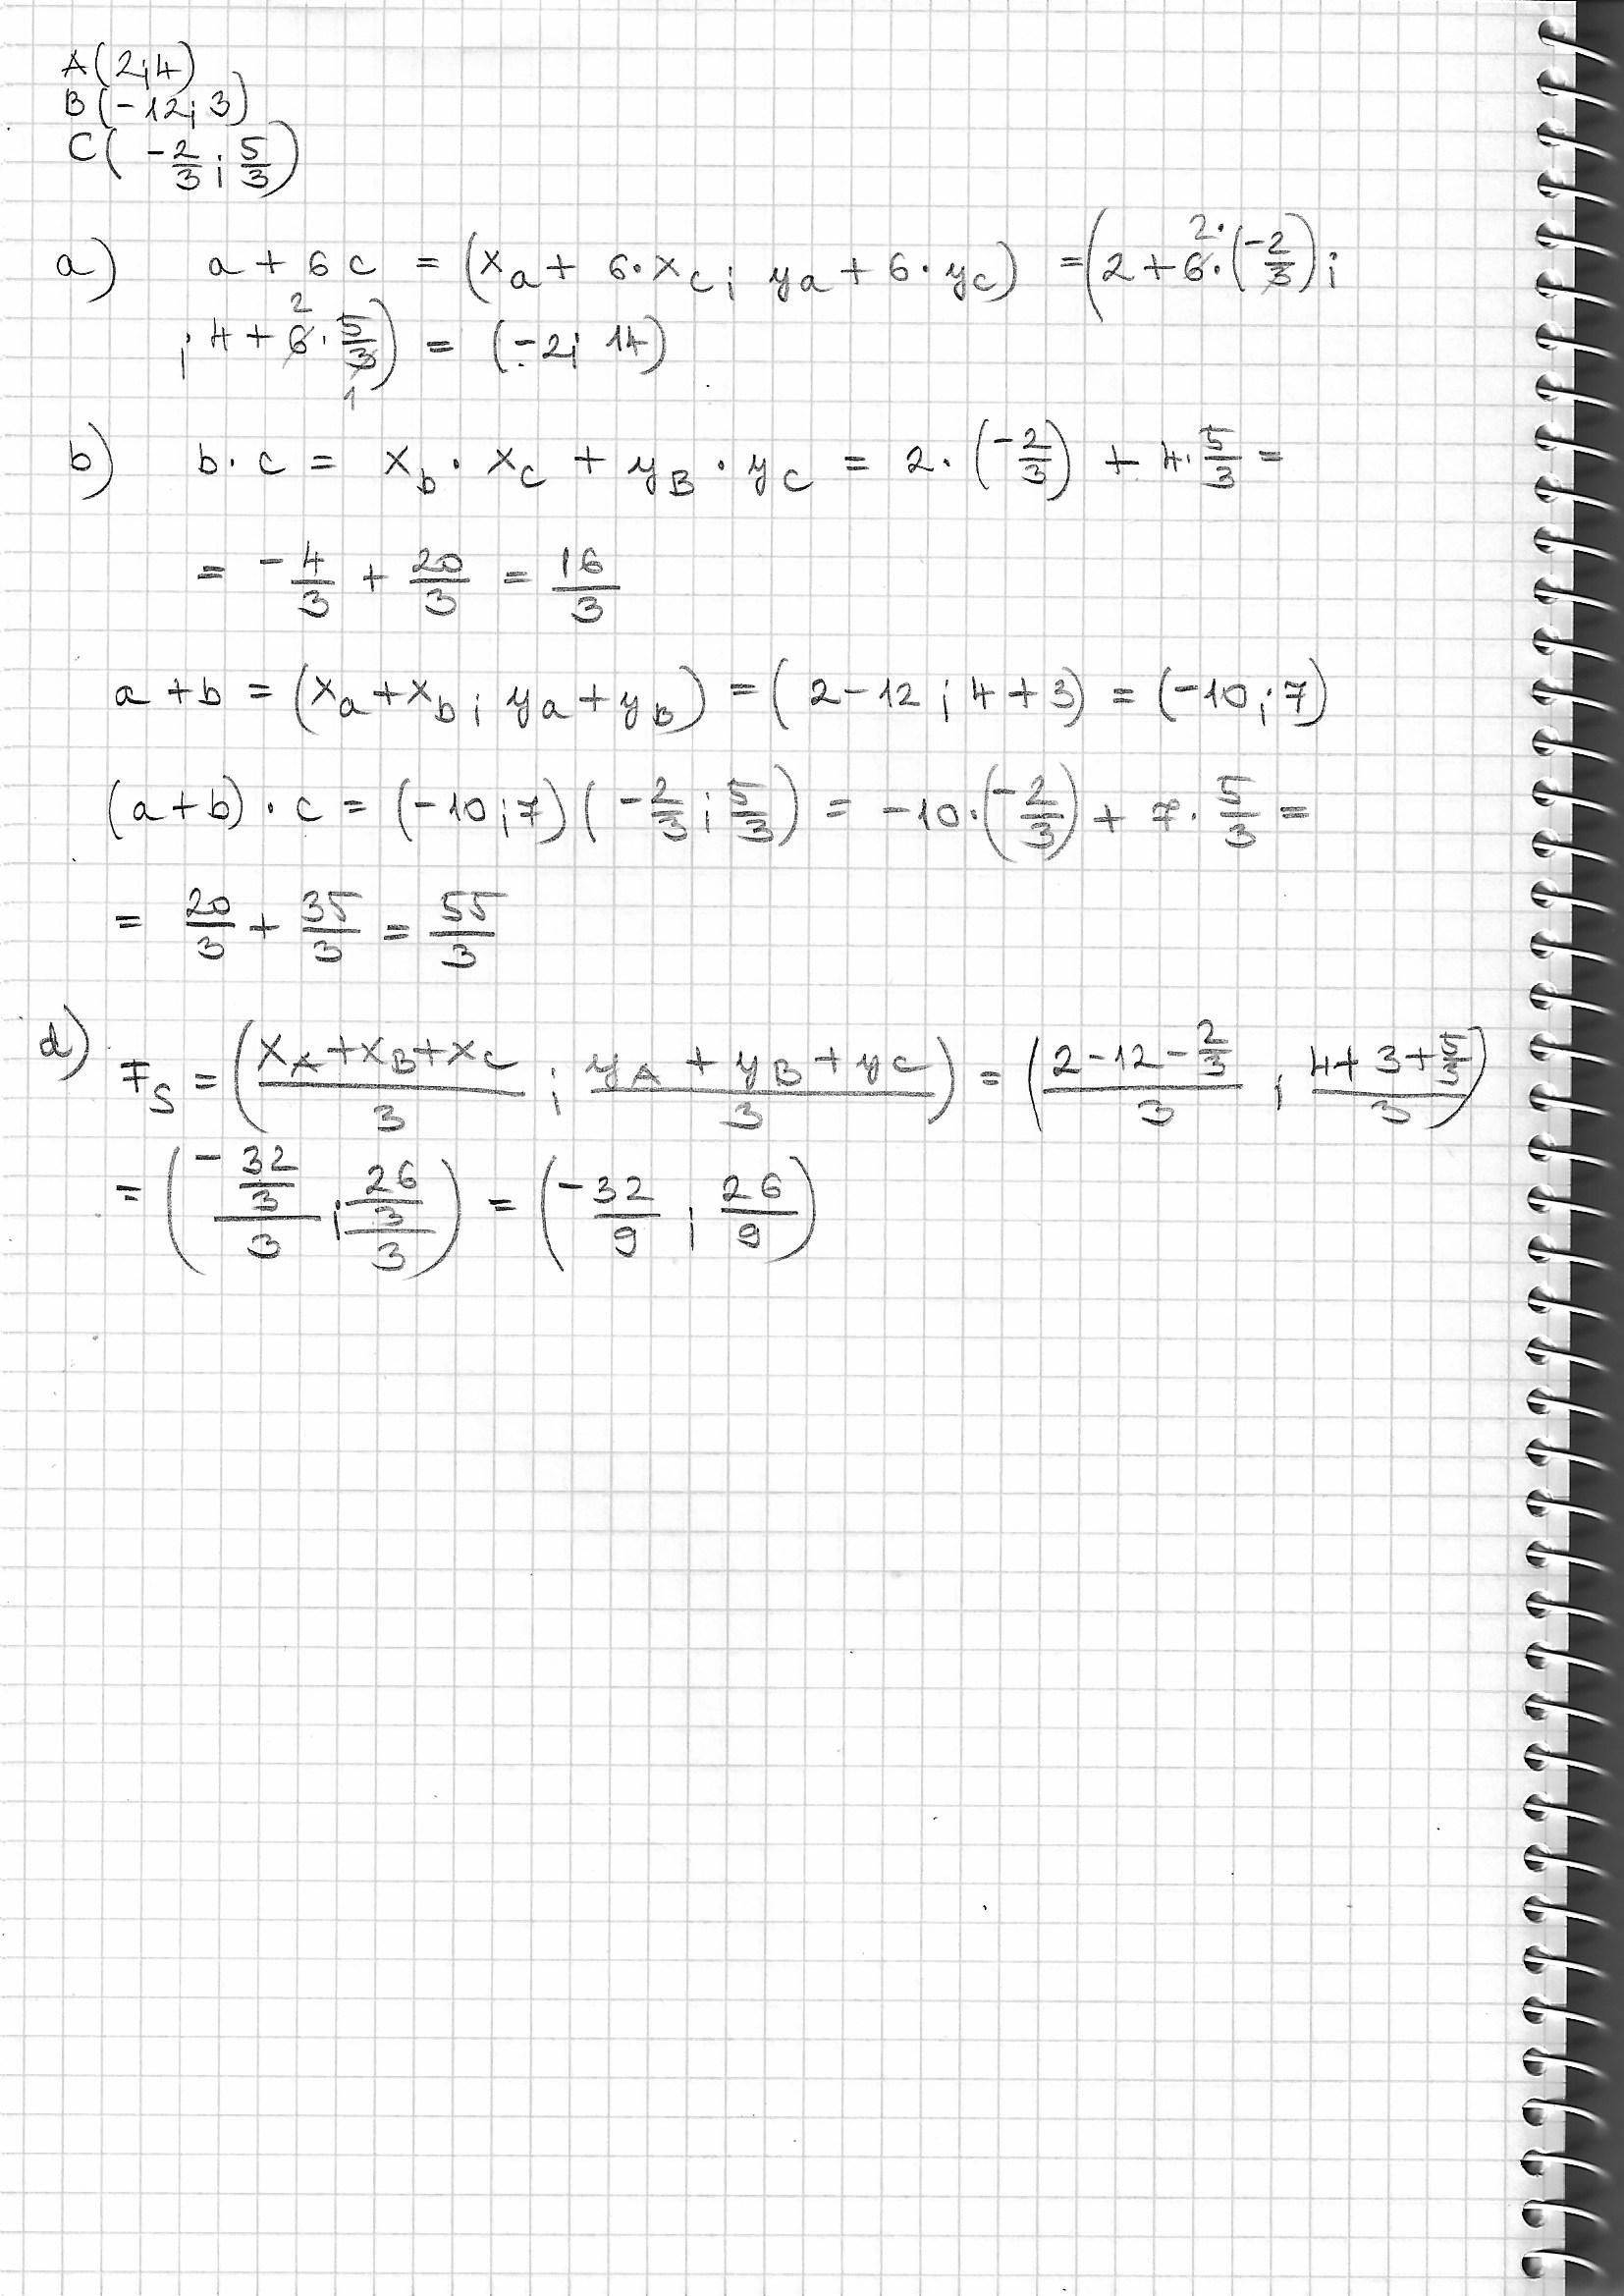 A(2;4)
B(-12;3)
C(-2/3;5/3)
a) a + 6c = (x_a + 6·x_c; y_a + 6·y_c) = (2 + 6·2·(-2/3);
;4 + 6·5/3) 2 1 = (-2; 14)
b) b·c = x_b·x_c + y_B·y_c = 2·(-2/3) + 4·5/3 =
= -4/3 + 20/3 = 16/3
a + b = (x_a + x_b; y_a + y_B) = (2-12; 4+3) = (-10;7)
(a+b)·c = (-10;7)(-2/3;5/3) = -10·(-2/3) + 7·5/3 =
= 20/3 + 35/3 = 55/3
d) F_S = ((x_A+x_B+x_C)/3; (y_A+y_B+y_C)/3) = ((2-12-2/3)/3; (4+3+5/3)/3)
= ((-32/3)/3; (26/3)/3) = (-32/9; 26/9)